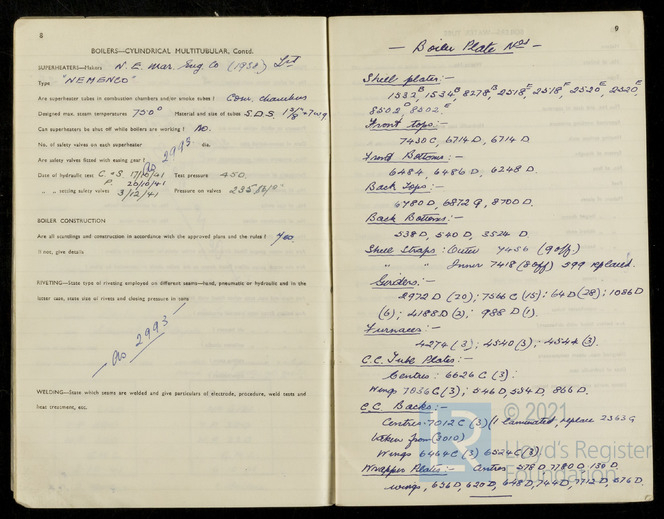 8
BOILERS—CYLINDRICAL MULTITUBULAR, Contd.
SUPERHEATERS—Makers N. E. Mar. Eng. Co (1938) Ltd
Type "NEMENCO"
Are superheater tubes in combustion chambers and/or smoke tubes? Com. chambers
Designed max. steam temperatures 750° Material and size of tubes S.D.S.
Can superheaters be shut off while boilers are working? No.
No. of safety valves on each superheater dia.
As 2993
Are safety valves fitted with easing gear?
Date of hydraulic test C & S 17/10/41 Test pressure 450.
P. 20/10/41
„ „ setting safety valves 3/12/41 Pressure on valves 235
BOILER CONSTRUCTION
Are all scantlings and construction in accordance with the approved plans and the rules? Yes
If not, give details
RIVETING—State type of riveting employed on different seams—hand, pneumatic or hydraulic and in the
latter case, state size of rivets and closing pressure in tons
As 2993
WELDING—State which seams are welded and give particulars of electrode, procedure, weld tests and
heat treatment, etc.
9
— Boiler Plate Nos —
Shell plates:—
1532B, 1534B, 8278B, 2518E, 2518F, 2520E, 2520E,
8502D, 8502E.
Front tops:—
7430C, 6714D, 6714D.
Front Bottoms:—
6484, 6486D, 6248D.
Back Tops:—
6780D, 6872G, 8700D.
Back Bottoms:—
538D, 540D, 3524D.
Shell Straps: Outer 7456 (9 off.)
„ „ Inner 7418 (8 off) 399 replaced.
Girders:—
2972D (20); 7566C (15); 64D (28); 1086D
(6); 4188D (2); 988D (1).
Furnaces:—
4274 (3); 4540 (3); 4544 (3).
C.C. Tube Plates:—
Centres: 6626C (3):
Wings 7836C (3); 546D, 534D, 866D.
C.C. Backs:—
Centres: 7012C (3) (1 laminated, replace 2363G
taken from (3010)
Wings 6464C (3) 6524C (3)
Wrapper Plates:— Centres 578D, 7780D, 130D.
wings, 636D, 620D, 648D, 744D, 7712D, 676D.
© 2021
Lloyd's Register
Foundation